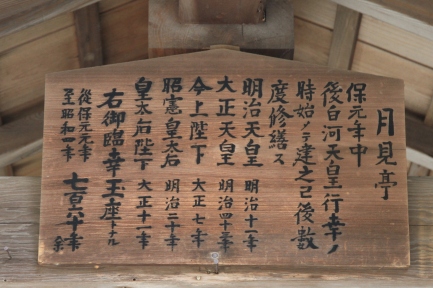 月見亭
保元年中
後白河天皇行幸ノ
時始メ建之已後数
度修繕ス
明治天皇 明治十一年
大正天皇 明治四十三年
今上陛下 大正七年
昭憲皇太后 明治二十年
皇太后陛下 大正十一年
右御臨幸玉座トナル
従保元元年
至昭和四年
七百六十年